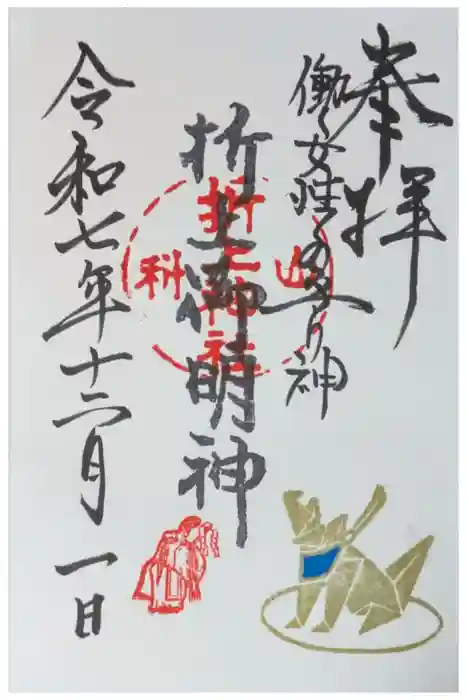 奉拝
働く女性の守り神
折上稲荷明神
山科
折上神社
令和七年十二月一日